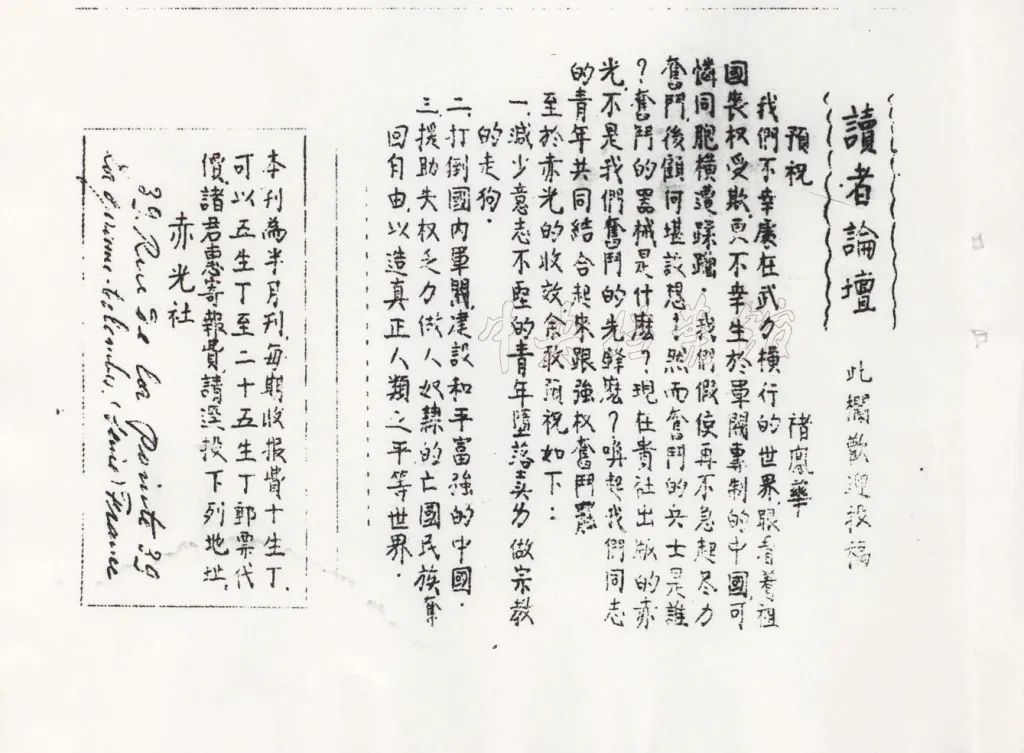 讀者論壇
此欄歡迎投稿
預祝
褚鳳華
我們不幸處在武力橫行的世界眼看着祖
國喪权受欺更不幸生於軍閥專制的中國可
憐同胞橫遭蹂躪．我們假使再不急起尽力
奮鬥後顧何堪設想？然而奮鬥的兵士是誰
？奮鬥的器械是什麽？現在貴社出版的赤
光不是我們奮鬥的先鋒麽？喚起我們同志
的青年共同結合起來跟強权奮鬥
至於赤光的收效余敢預祝如下：
一、減少意志不堅的青年墮落去為做宗教
的走狗．
二、打倒國內軍閥、建設和平富強的中國．
三、援助失权乏力做人奴隸的亡國民族奮
回自由、以造真正人類之平等世界．
本刊為半月刊、每期收报費十生丁、
可以五生丁至二十五生丁郵票代
價、諸君惠寄報費、請逕投下列地址、
赤光社
39 Rue de la Pointe 39
La Garenne-Colombes, (Seine) France
中央檔案館